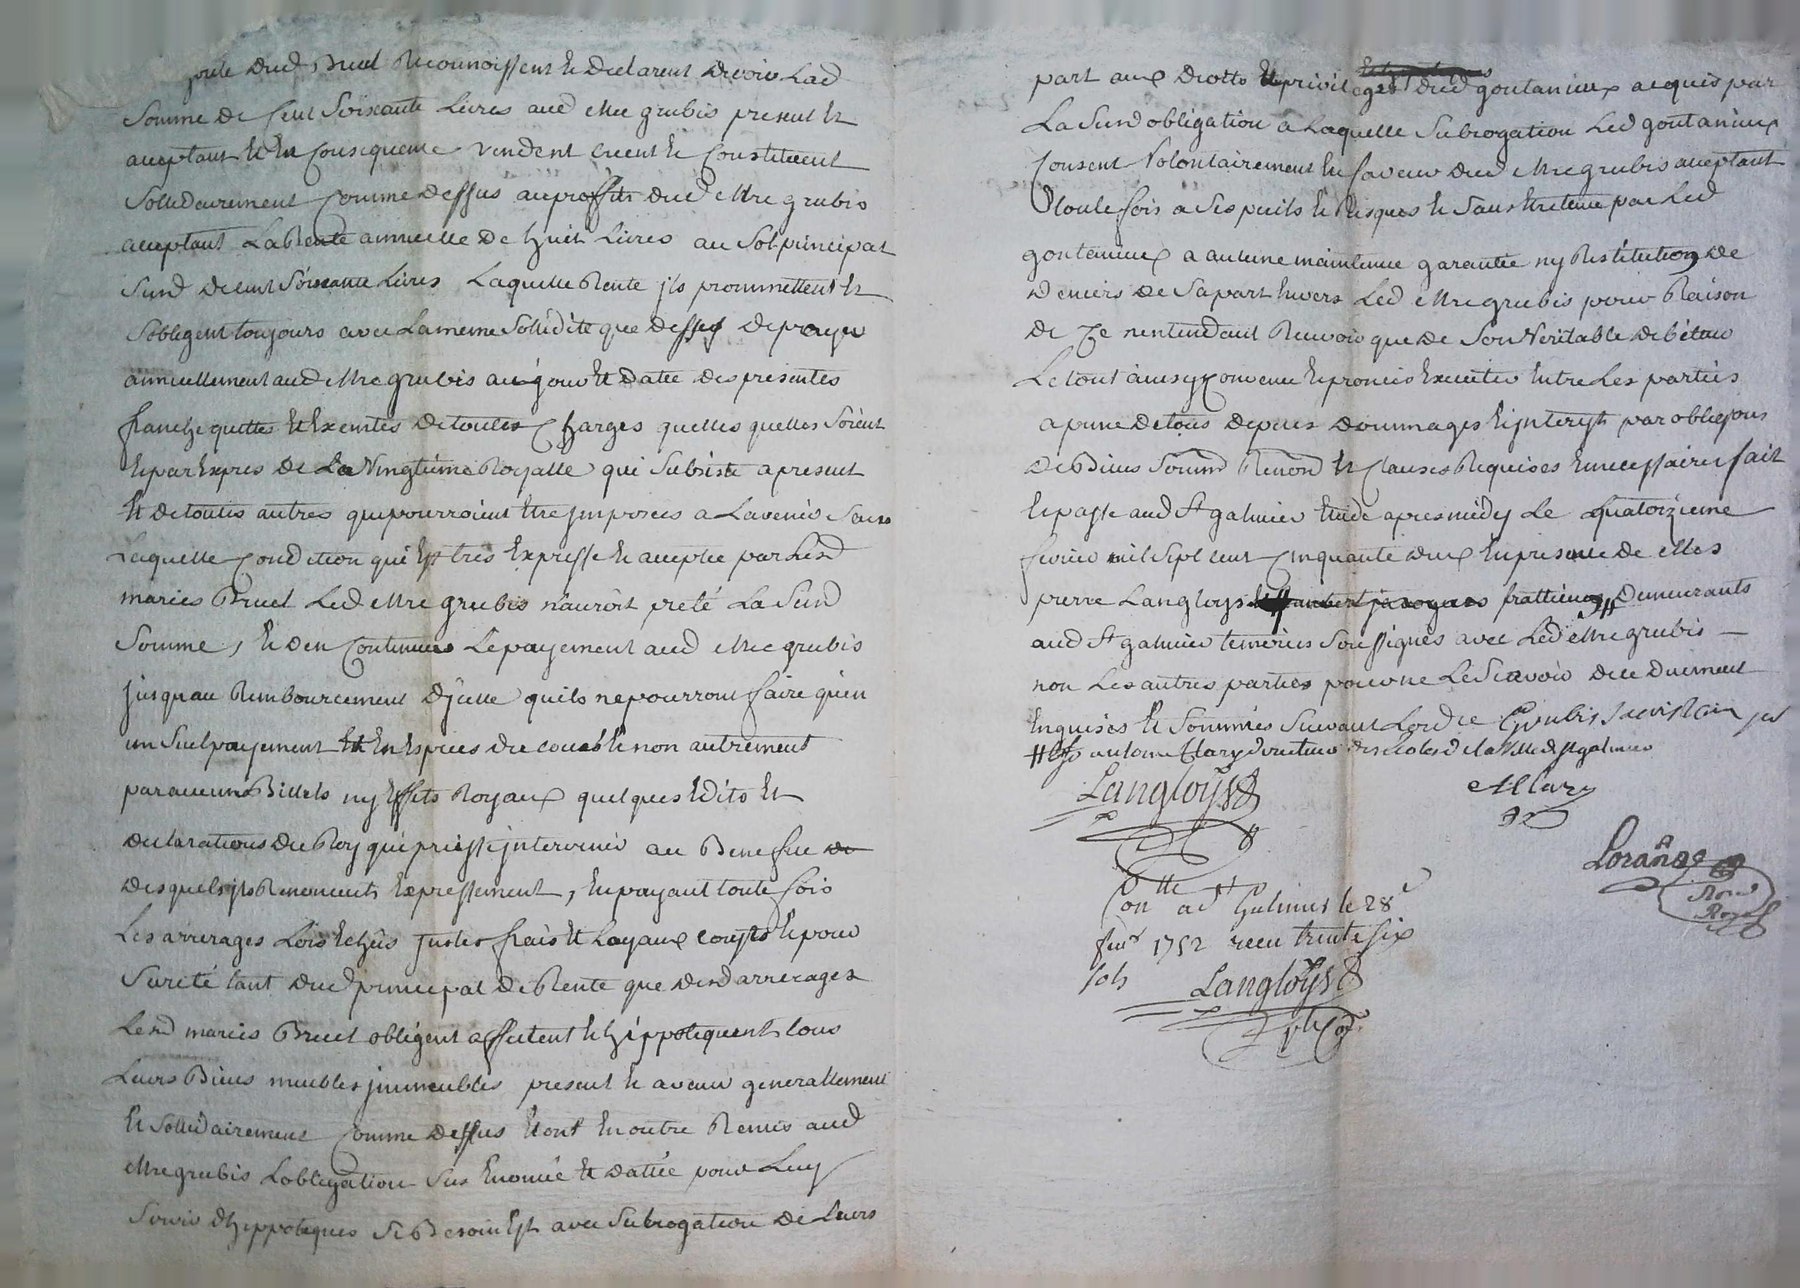 dud Bruel Reconnoissent et declarent devoir Lad
Somme de Cent Soixante Livres aud Mre grubis present et
aceptant et En Consequence vendent creent et Constituent
Sollidairement Comme dessus au proffit dud Mre grubis
aceptant La Rente annuelle de huit Livres au Sol principal
Susd de cent Soixante Livres Laquelle Rente jls prommettent et
Soblegent toujours avec La meme Sollidité que dessus de payer
annuellement aud Mre grubis au jour et datte des presentes
franche quitte et Exemtes de toutes Charges quelles quelles Soient
Et par Expres de La Vingtieme Royalle qui Subsiste a present
Et de toutes autres qui pourroient Etre jmposées a Lavenir Sans
Laquelle Condition qui Est tres Expresse et aceptée par Lesd
mariés Bruel Led Mre grubis n'auroit preté La Susd
Somme, et den Continuer Le payement aud Mre grubis
jusquau Rembourcement djcelle quils ne pourront faire qu'en
un Seul payement et En Espèces de cours et non autrement
par aucuns Billets ny Effets Royaux quelques Edits et
declarations du Roy qui puisse jntervenir au Benefice de
desquels jls Renoncent Expressement, En payant toute fois
Les arrerages Lors Echûs justes frais et Loyaux couts et pour
Sureté tant dud principal de Rente que desd arrerages
Lesd mariés Bruel obligent affectent et hippotequent tous
Leurs Biens meubles jmmeubles present et avenir generallement
et Sollidairement Comme dessus Et ont En outre Remis aud
Mre grubis Lobligation Sus Enoncée et dattée pour Luy
Servir dhippoteques Si Besoin Est avec Subrogation de Leurs
part aux droits Et privileges dud goutanieux acquis par
La Susd obligation a Laquelle Subrogation Led goutanieux
Consent Volontairement En faveur dud Mre grubis aceptant
toute fois a Ses perils et Risques et Sans Etre tenu par Led
goutanieux a aucune maintenue garantie ny Restitution de
deniers de Sa part Envers Led Mre grubis pour Raison
de Ce nentendant Recevoir que de Son Veritable debiteur
Le tout ainsy Convenu et promis Executer Entre Les parties
a peine de tous depens dommages Et jnterests par obligeons
de Biens Soumn Renon et Clauses Requises et necessaires fait
et passé aud St galmier Etude apres midy Le quatorzieme
fevrier mil Sept cent Cinquante deux En presence de Mes
pierre Langloys pratticien demeurants
aud St galmier temoins Soussignés avec Led Mre grubis
non Les autres parties pour ne Le Scavoir de ce duement
Enquises et Sommées Suivant Lordre Grubis
antoine Clary directeur des Ecoles de la Ville de St galmier
Langloys
Clary
Lorañge
Nore
Royal
Con[tt]e a St Galmier le 28
fevr 1752 receu trente six
sols
Langloys